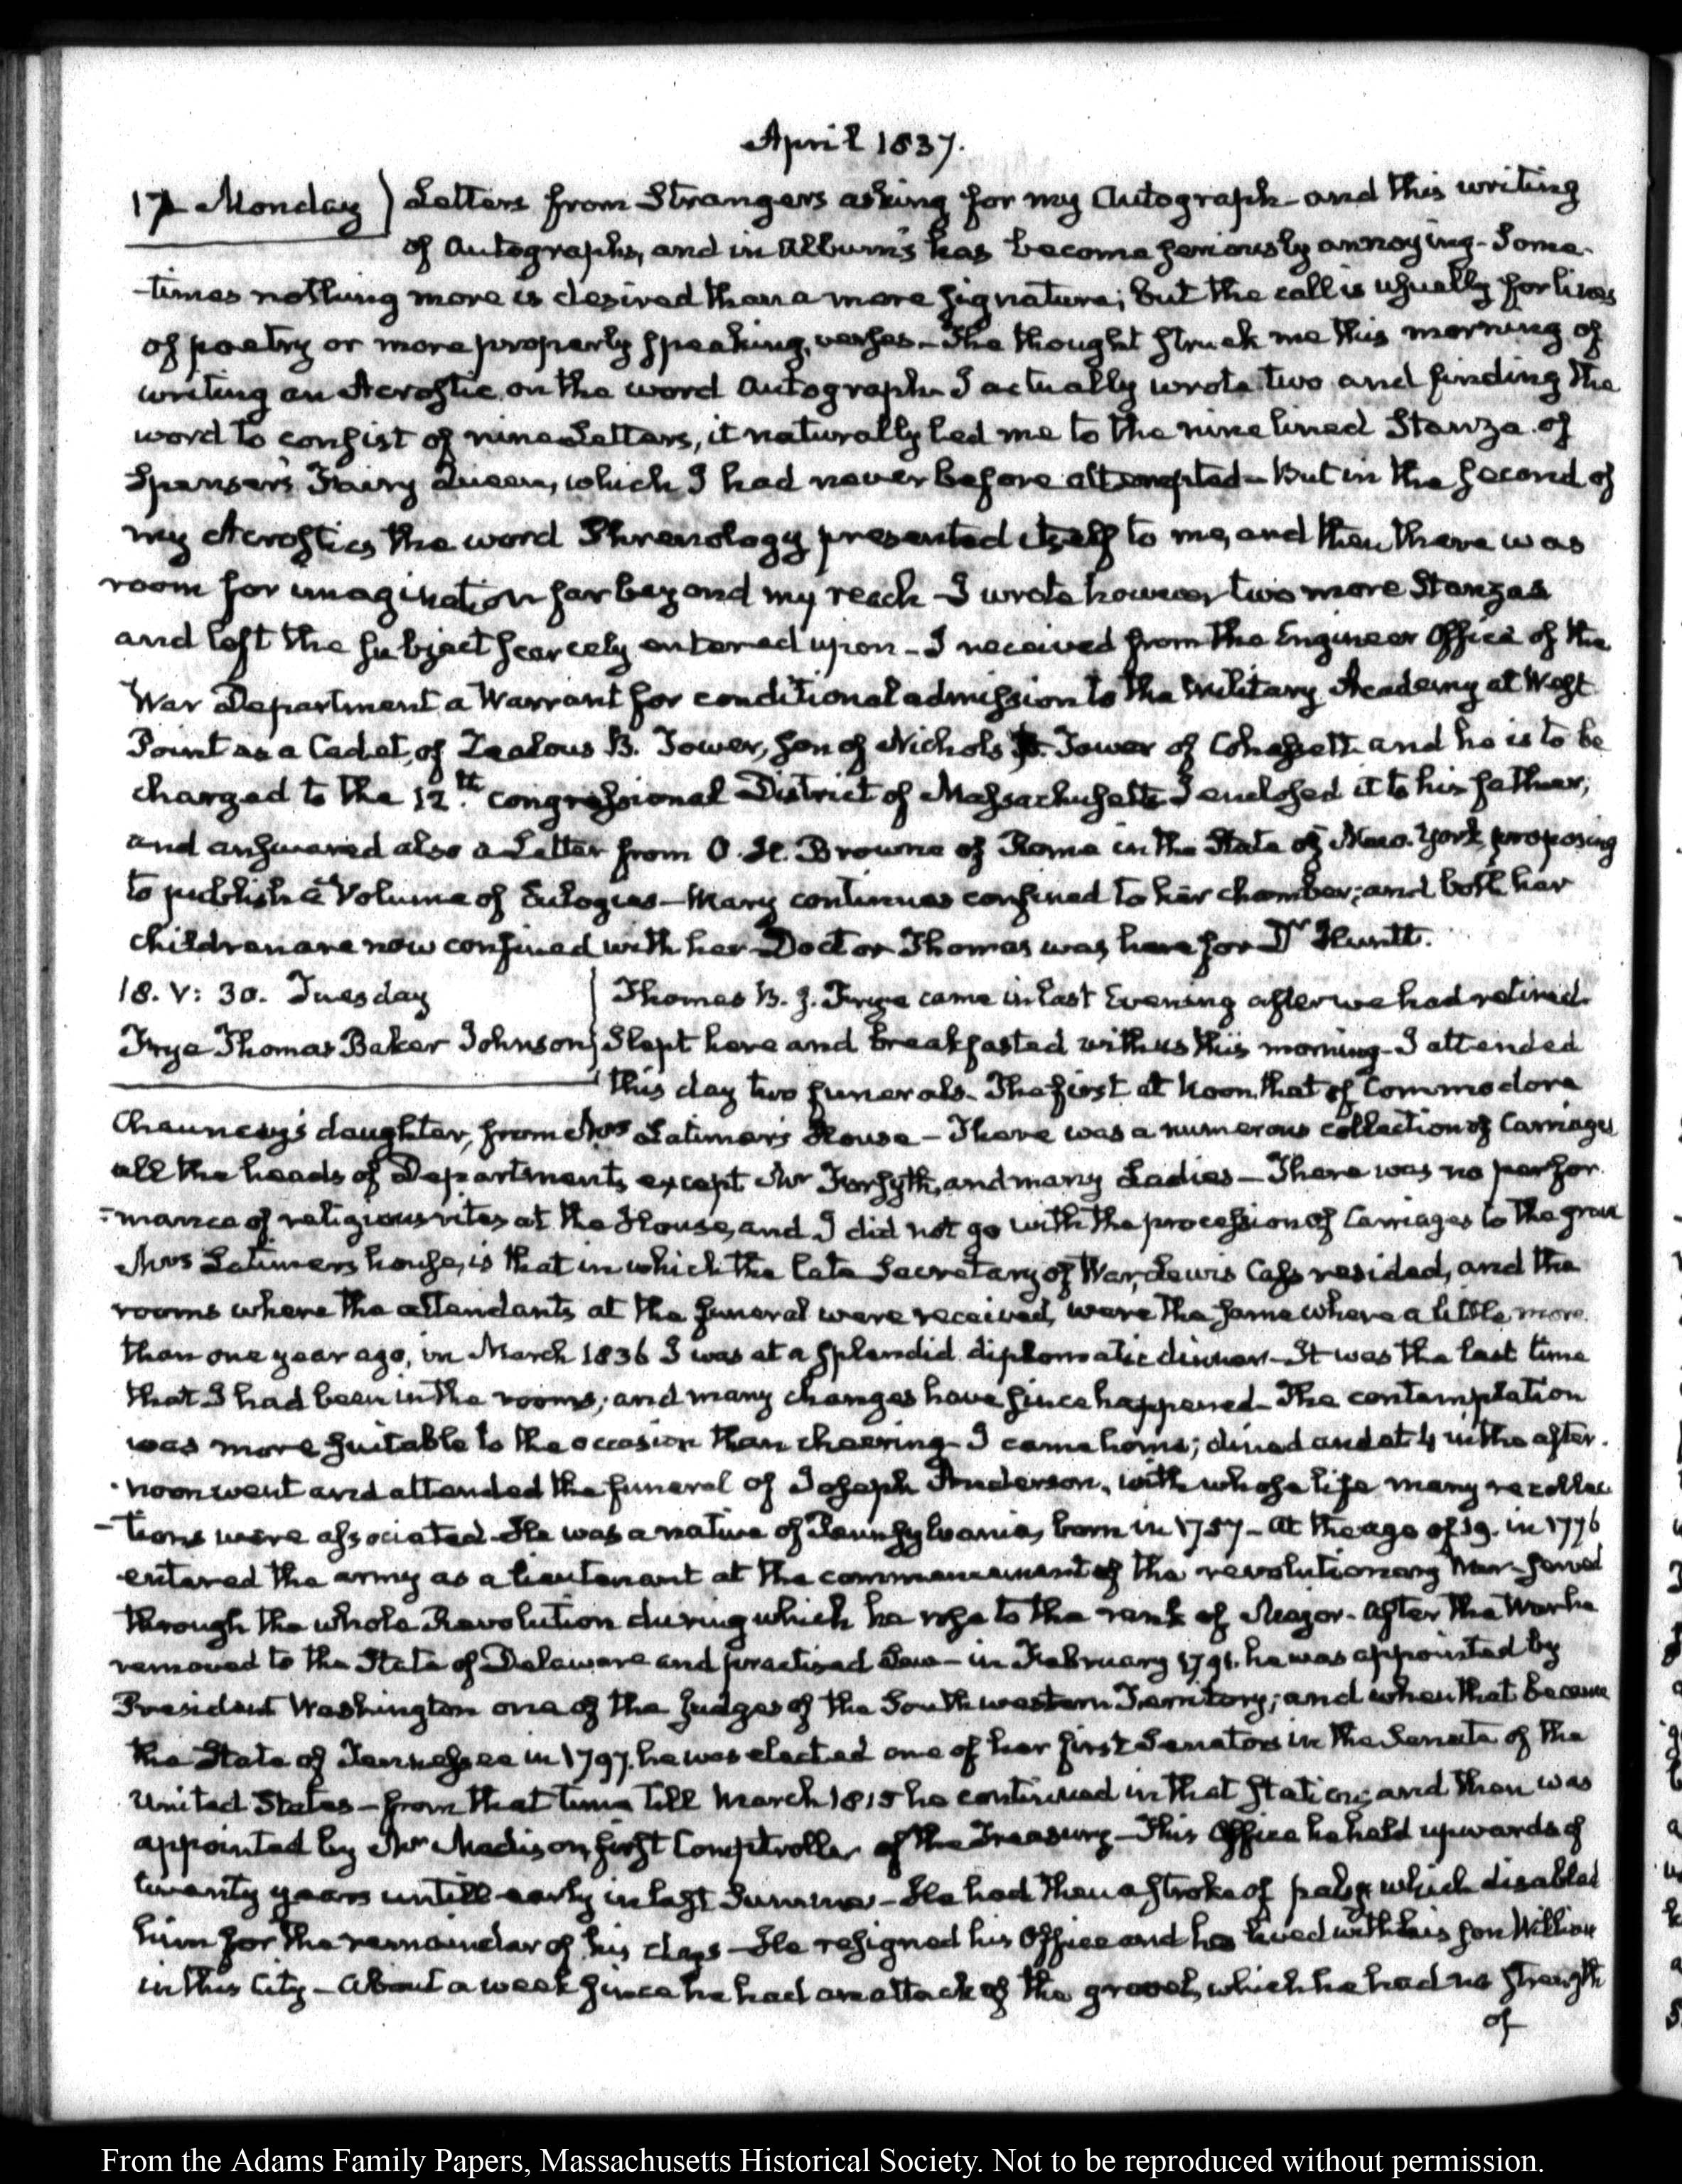 April 1837.
17 Monday) Letters from Strangers asking for my Autograph - and this writing
of Autographs, and in Album's has become seriously annoying - Some-
times nothing more is desired than a mere signature; but the call is usually for lines
of poetry or more properly speaking, verses - The thought struck me this morning of
writing an Acrostic, on the word Autograph I actually wrote two and finding the
word to consist of nine Letters, it naturally led me to the nine lined Stanza of
Spenser's Fairy Queen, which I had never before attempted - But in the second of
my Acrostics the word Phrenology presented itself to me, and then there was
room for imagination far beyond my reach - I wrote however two more Stanzas
and left the subject scarcely entered upon - I received from the Engineer Office of the
War Department a Warrant for conditional admission to the Military Academy at West
Point as a Cadet, of Zealous B. Tower, son of Nichols Tower of Cohassett and he is to be
charged to the 12th. congressional District of Massachusetts I enclosed it to his father;
and answered also a Letter from O. H. Browne of Rome in the State of New-York, proposing
to publish a Volume of Eulogies - Mary continues confined to her chamber; and both her
children are now confined with her - Doctor Thomas was here for Dr Huntt.
18. V: 30. Tuesday
Frye Thomas Baker Johnson
Thomas B. J. Frye came in last Evening after we had retired.
Slept here and breakfasted with us this morning - I attended
this day two funerals. The first at Noon, that of Commodore
Chauncey's daughter, from Mrs Latimer's House - There was a numerous collection of Carriages
all the heads of Departments, except Mr Forsyth, and many Ladies - There was no perfor
=mance of religious rites at the House, and I did not go with the procession of Carriages to the grave
Mrs Latimers house, is that in which the late Secretary of War, Lewis Cass resided, and the
rooms where the attendants at the funeral were received, were the same where a little more
than one year ago, in March 1836 I was at a splendid diplomatic dinner - It was the last time
that I had been in the rooms; and many changes have since happened - The contemplation
was more suitable to the occasion than cheering - I came home; dined and at 4 in the after-
-noon went and attended the funeral of Joseph Anderson, with whose life many recollec
-tions were associated - He was a native of Pennsylvania, born in 1757 - At the age of 19. in 1776
entered the army as a lieutenant at the commencement of the revolutionary War - served
through the whole Revolution during which he rose to the rank of Major - After the War he
removed to the State of Delaware and practised Law - in February 1791. he was appointed by
President Washington one of the judges of the Southwestern Territory; and when that became
the State of Tennessee in 1797. he was elected one of her first Senators in the Senate of the
United States - from that time till March 1815 he continued in that station; and then was
appointed by Mr Madison, first Comptroller of the Treasury - This Office he held upwards of
twenty years untill early in last Summer - He had then a stroke of palsy which disabled
him for the remainder of his days - He resigned his Office and has lived with his son William
in this City - About a week since he had an attack of the gravel, which he had no strength
of
From the Adams Family Papers, Massachusetts Historical Society. Not to be reproduced without permission.